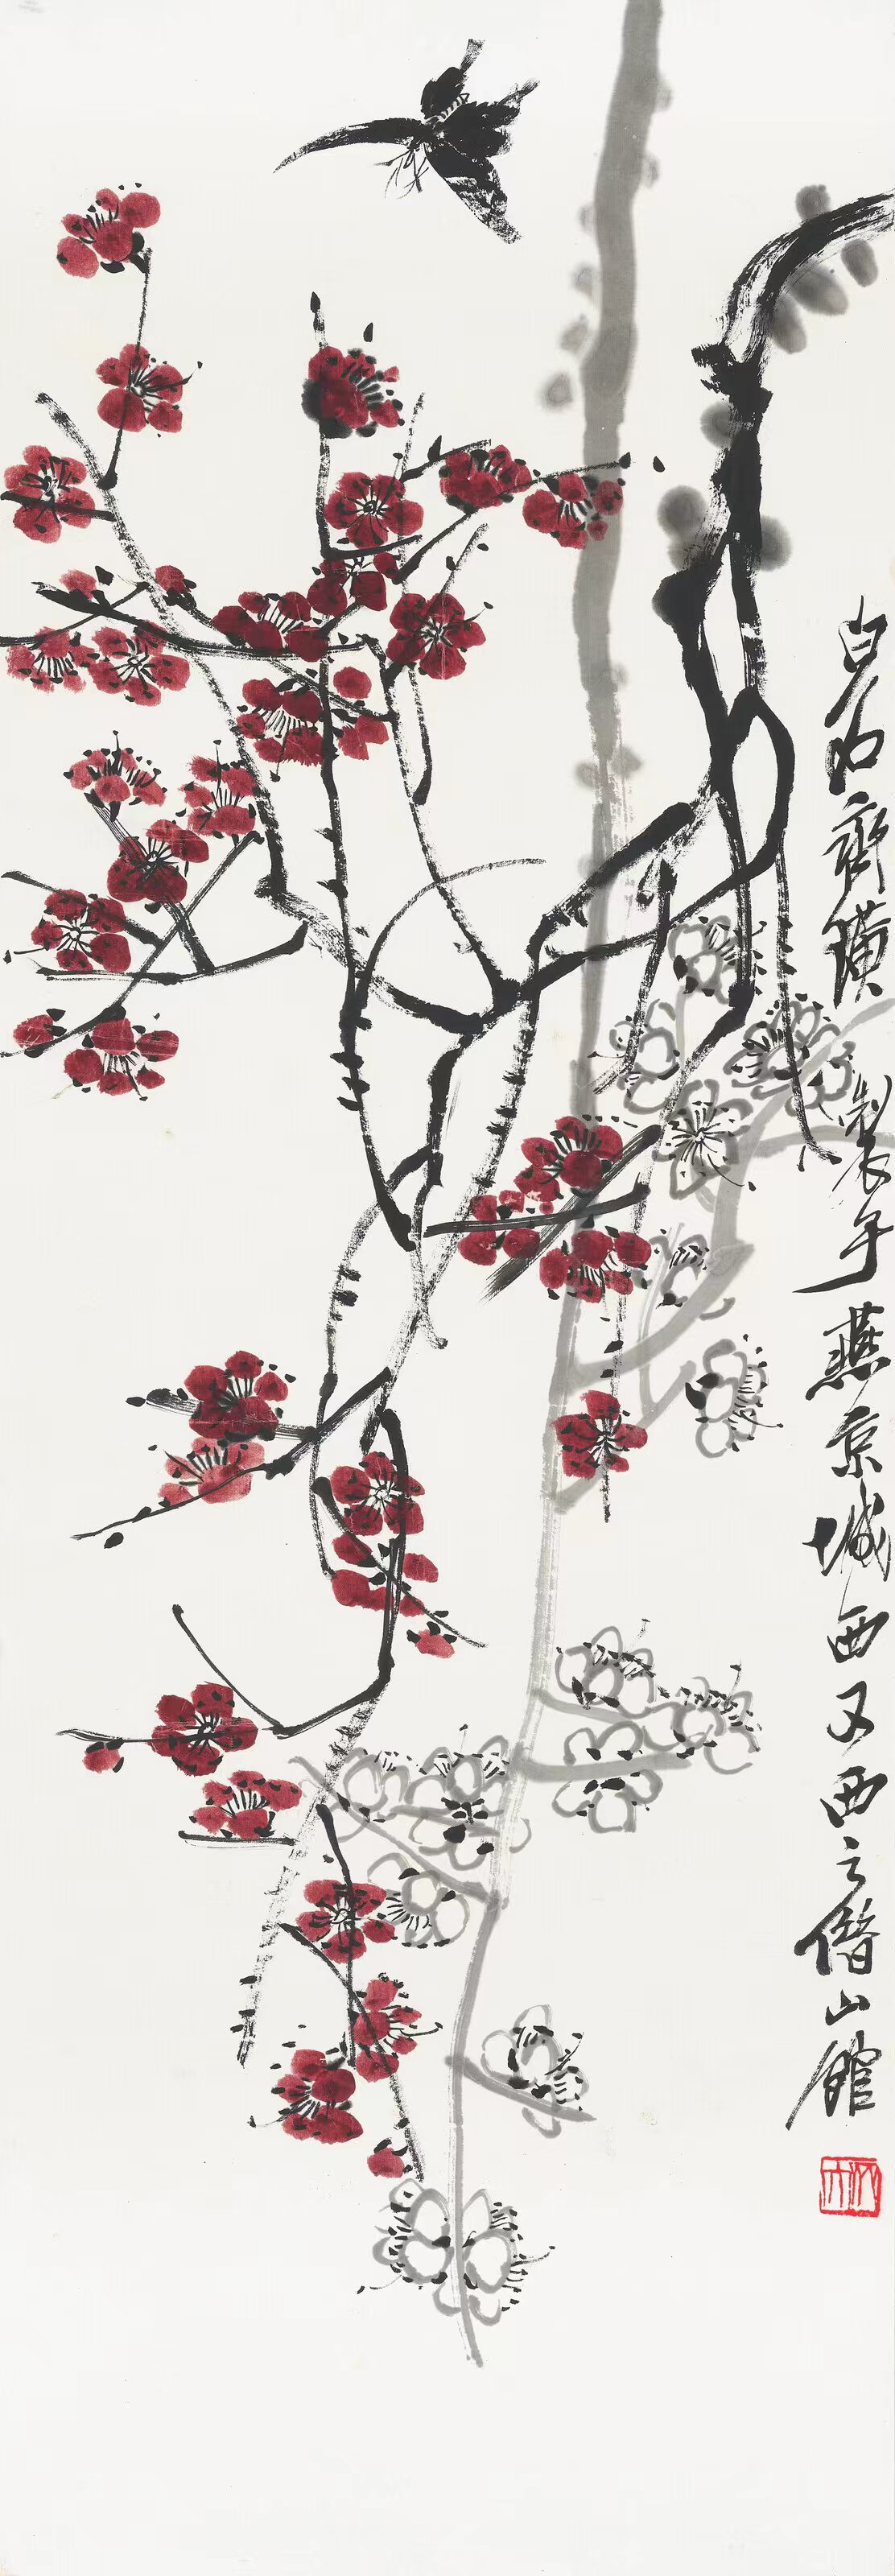 白石齊璜製于燕京城西又西之借山館
木人